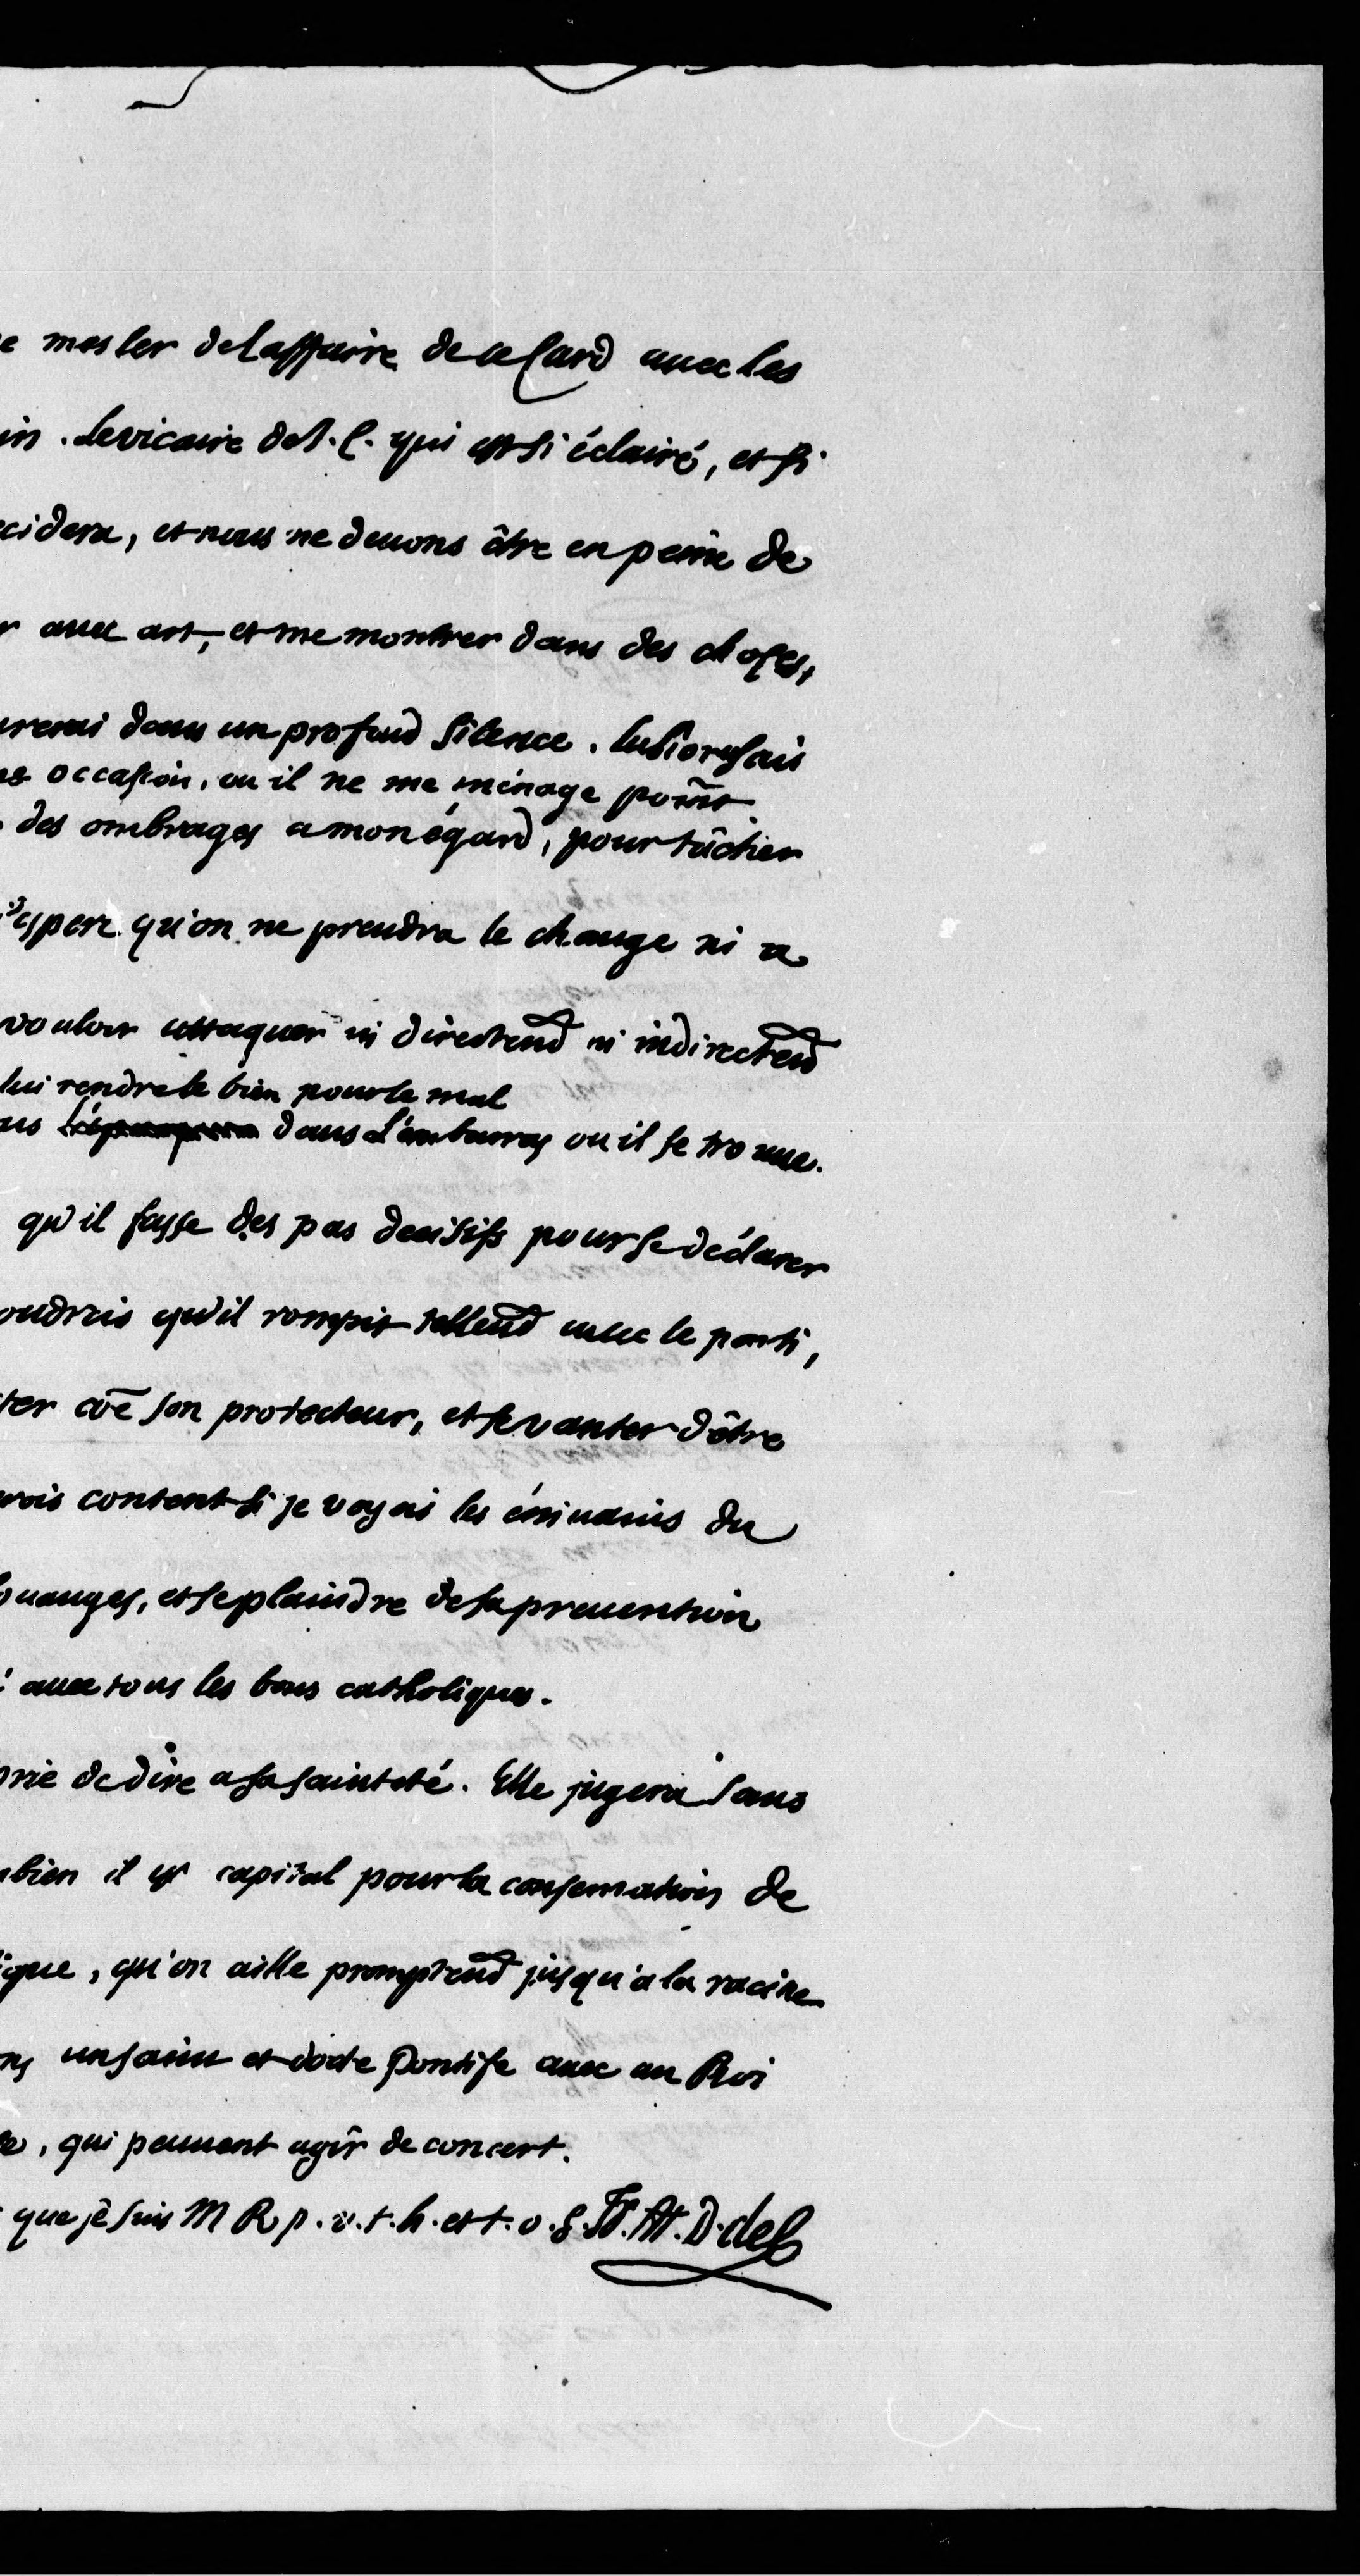 e mesler de laffaire de ce Card auec les
in. Le vicaire de J. C. qui est si éclairé, et si
cidera, et nous ne deuons être en peine de
r auec art, et me montrer dans des choses,
urerai dans un profond silence.
occasion, ou il ne me ménage point
des ombrages a mon égard, pour tâcher
espere qu'on ne prendra le change ni a
vouloir attaquer ni directemt ni indirectemt
lui rendre le bien pour le mal
us dans l'embarras ou il se trouue.
qu'il fasse des pas decisifs pour se déclarer
oudrois qu'il rompit tellemt auec le parti,
ter coe son protecteur, et se vanter d'être
rois content si je voyois les du
ouanges, et se plaindre de sa preuention
auec tous les bons catholiques.
prie de dire a sa sainteté. Elle jugera sans
mbien il est capital pour la conseruation de
ique, qu'on aille promptemt jusqu'a la racine
ns un saint et docte Pontife auec un Roi
e, qui peuuent agir de concert.
que je suis M R p. v. t. h. et t. o. s. Fr. Ar. D. de C